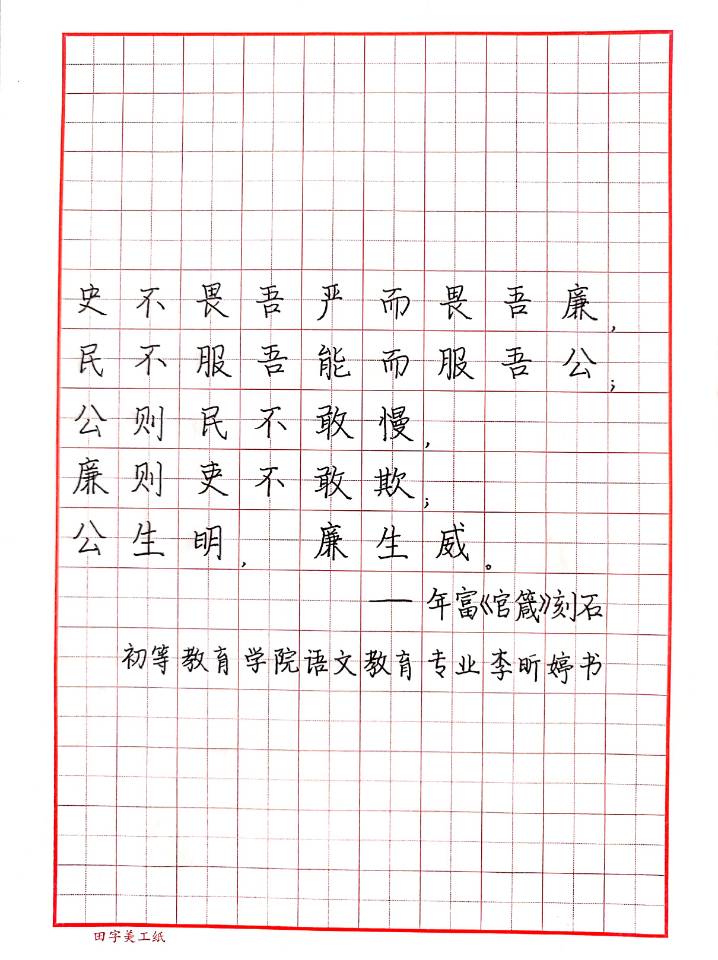 史不畏吾严而畏吾廉，
民不服吾能而服吾公；
公则民不敢慢，
廉则吏不敢欺；
公生明，廉生威。
——年富《官箴》刻石
初等教育学院语文教育专业李昕婷书
田字美工纸